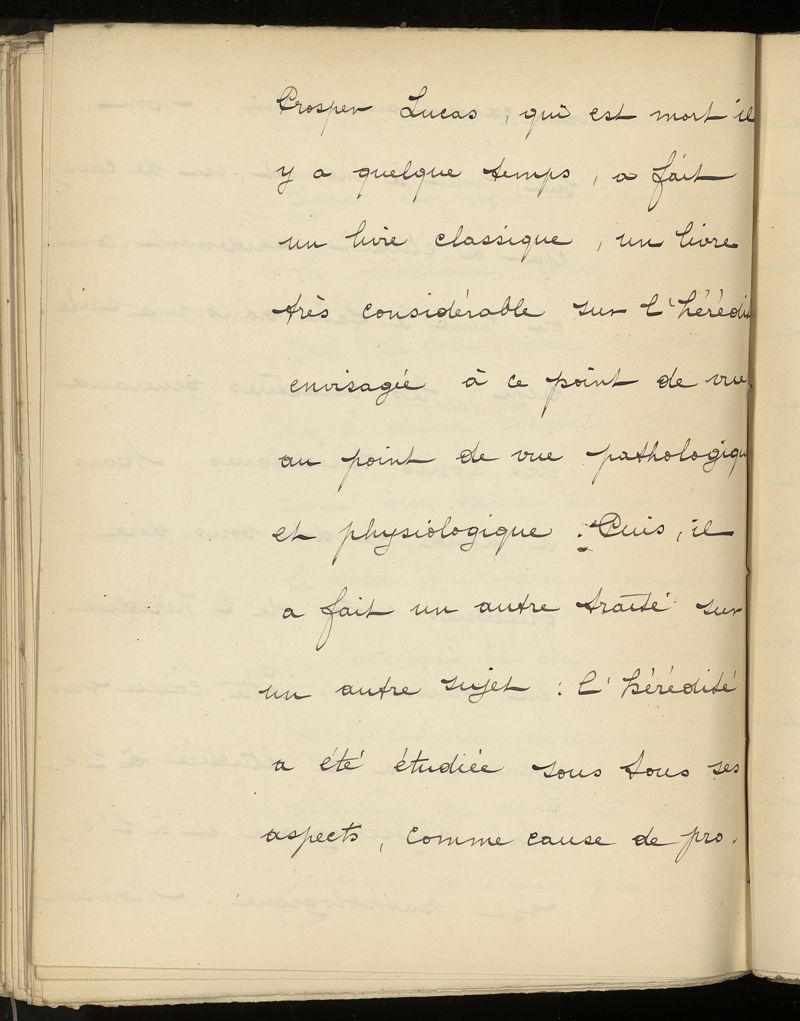 Prosper Lucas, qui est mort il
y a quelque temps, a fait
un livre classique, un livre
très considérable sur l'hérédi
envisagée à ce point de vue,
au point de vue pathologiqu
et physiologique. Puis, il
a fait un autre traité sur
un autre sujet : l'hérédité
a été étudiée sous tous ses
aspects, comme cause de pro-